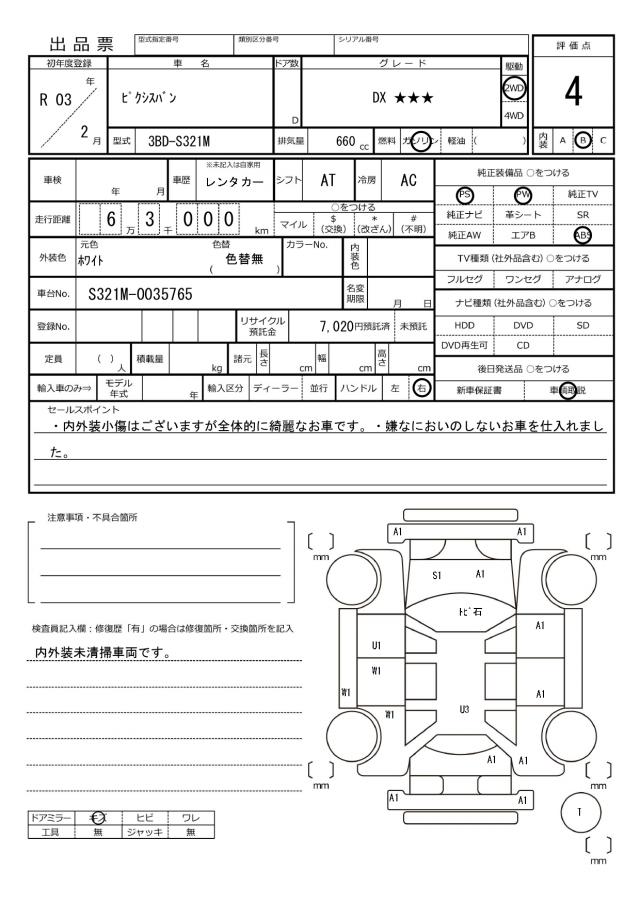 出品票
型式指定番号 類別区分番号 シリアル番号
評価点
初年度登録 車名 ドア数 グレード 駆動
R 03 年 2 月
ピクシスバン
D
DX ★★★
2WD
4WD
4
型式 3BD-S321M 排気量 660 cc 燃料 ガソリン 軽油 ( )
内装 A B C
車検 年 月 車歴 ※未記入は自家用 レンタカー シフト AT 冷房 AC
純正装備品 ○をつける
PS PW 純正TV
純正ナビ 革シート SR
純正AW エアB ABS
走行距離 6 万 3 千 0 0 0 km
○をつける
マイル $(交換) *(改ざん) #(不明)
外装色 元色 ホワイト 色替 ( 色替無 ) カラーNo. 内装色
TV種類 (社外品含む) ○をつける
フルセグ ワンセグ アナログ
車台No. S321M-0035765 名変期限 月 日
ナビ種類 (社外品含む) ○をつける
HDD DVD SD
DVD再生可 CD
登録No. リサイクル預託金 7,020円預託済 未預託
定員 ( ) 人 積載量 kg 諸元 長さ cm 幅 cm 高さ cm
後日発送品 ○をつける
新車保証書 車輌取説
輸入車のみ⇒ モデル年式 年 輸入区分 ディーラー 並行 ハンドル 左 右
セールスポイント
・内外装小傷はございますが全体的に綺麗なお車です。・嫌なにおいのしないお車を仕入れまし
た。
注意事項・不具合箇所
検査員記入欄：修復歴「有」の場合は修復箇所・交換箇所を記入
内外装未清掃車両です。
A1 A1
mm mm
S1 A1
トビ石
A1
U1
W1
W1 A1
W1 U3
A1 A1
mm mm
A1 A1
T
mm
ドアミラー キズ ヒビ ワレ
工具 無 ジャッキ 無